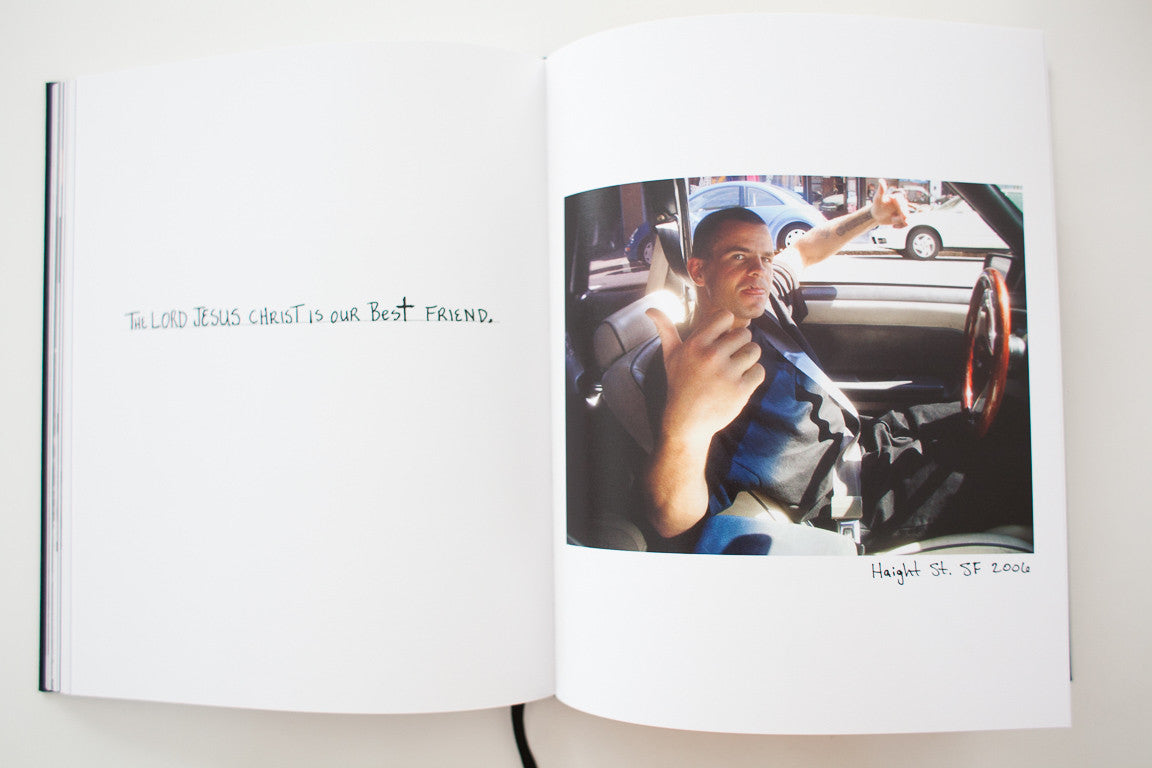 THE LORD JESUS CHRIST IS OUR Best FRIEND.
Haight St. SF 2006